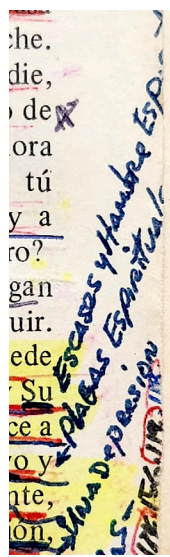 che.
die,
o de
ora
tú
y a
ro?
gan
uir.
ede
Su
ce a
vo y
nte,
ón,
Escases y Hambre Esp
Plagas Espirituales
Una Depresion